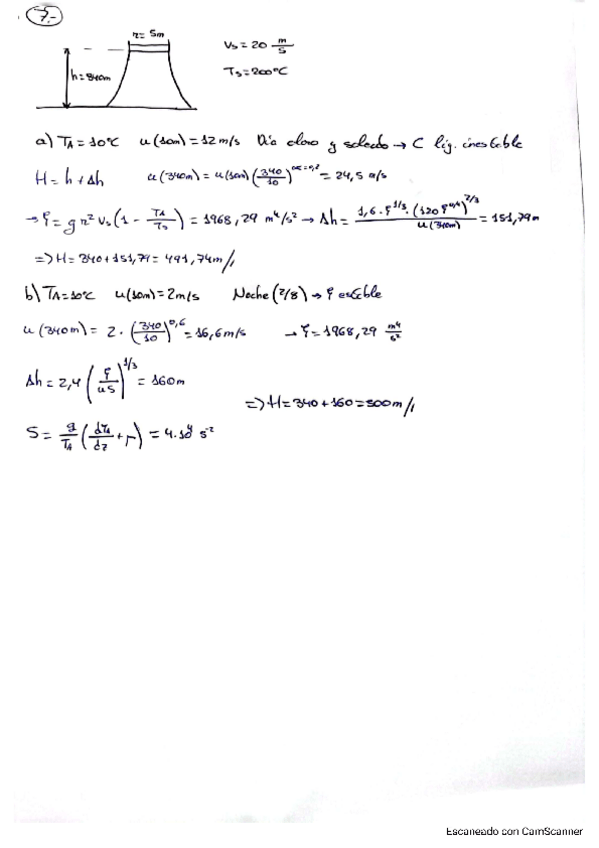 7.-
r = 5m
h = 340m
Vs = 20 m/s
Ts = 200ºC
a) TA = 10ºC u(10m) = 12 m/s Día claro y soleado → C lig. inestable
H = h + Δh u(340m) = u(10m) (340/10)^α=0,2 = 24,5 m/s
→ F = g r² Vs (1 - TA/Ts) = 1968,29 m⁴/s² → Δh = 1,6 · F^1/3 · (120 F^0,4)^2/3 / u(340m) = 151,79m
=> H = 340 + 151,79 = 491,74m //
b) TA = 10ºC u(10m) = 2m/s Noche (2/8) → F estable
u(340m) = 2 · (340/10)^0,6 = 16,6 m/s → F = 1968,29 m⁴/s²
Δh = 2,4 (F/uS)^1/3 = 160m
=> H = 340 + 160 = 500m //
S = g/TA (dTA/dz + Γ) = s⁻²
Escaneado con CamScanner